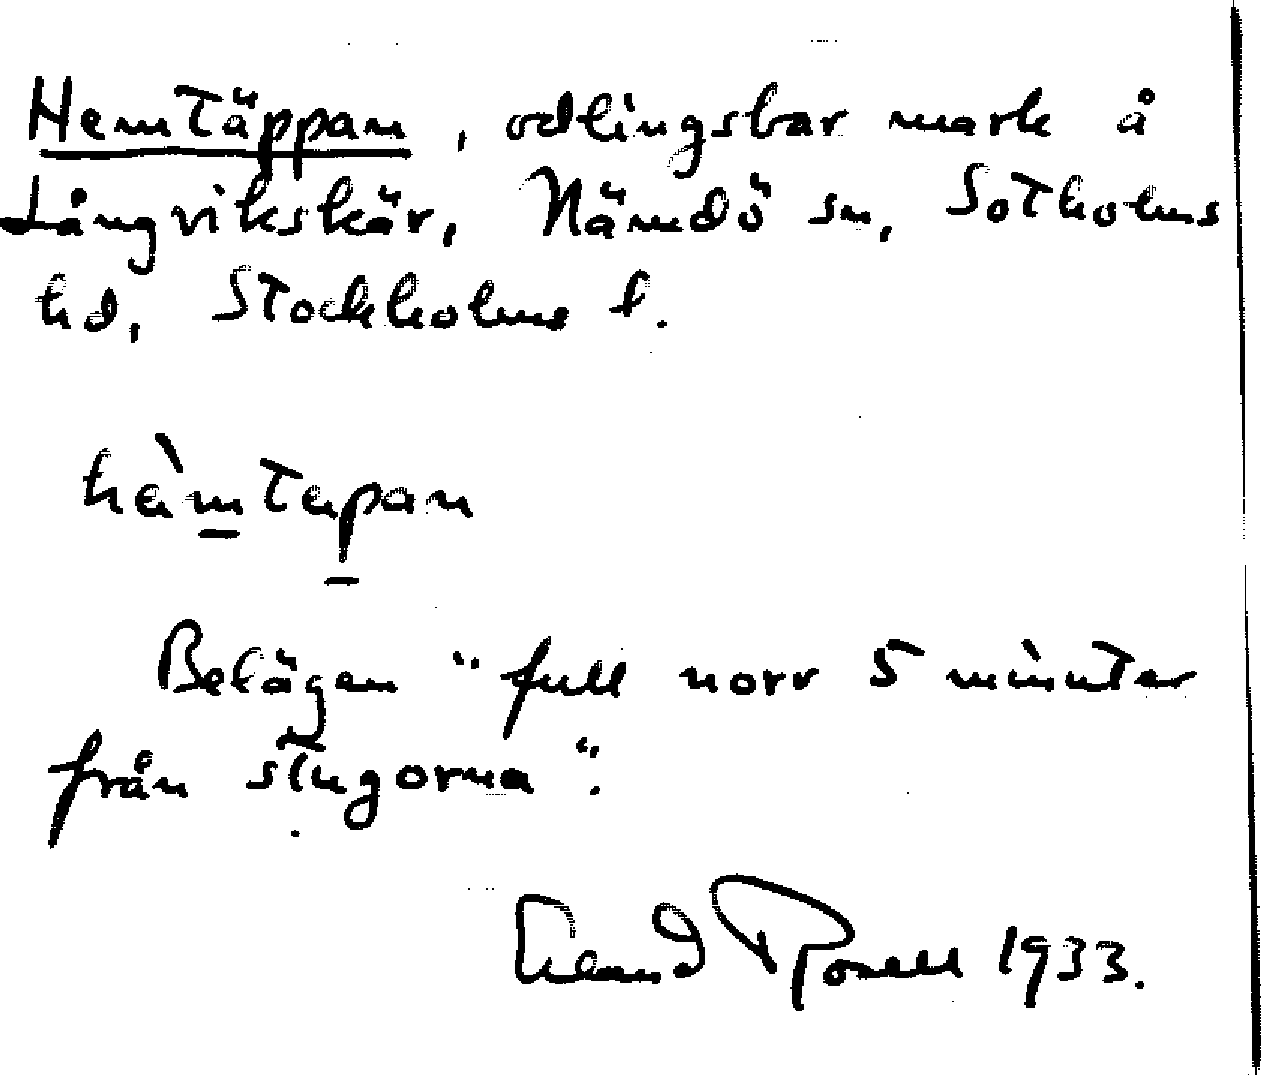 Hemtäppan, odlingsbar mark å
Långvikskär, Nämdö sn, Sotholms
hd, Stockholms l.
hèmtepan
Belägen "full norr 5 minuter
från stugorna".
Erland Rosell 1933.